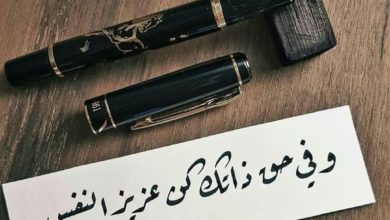 وفي حق ذاتك كن عزيز النفس